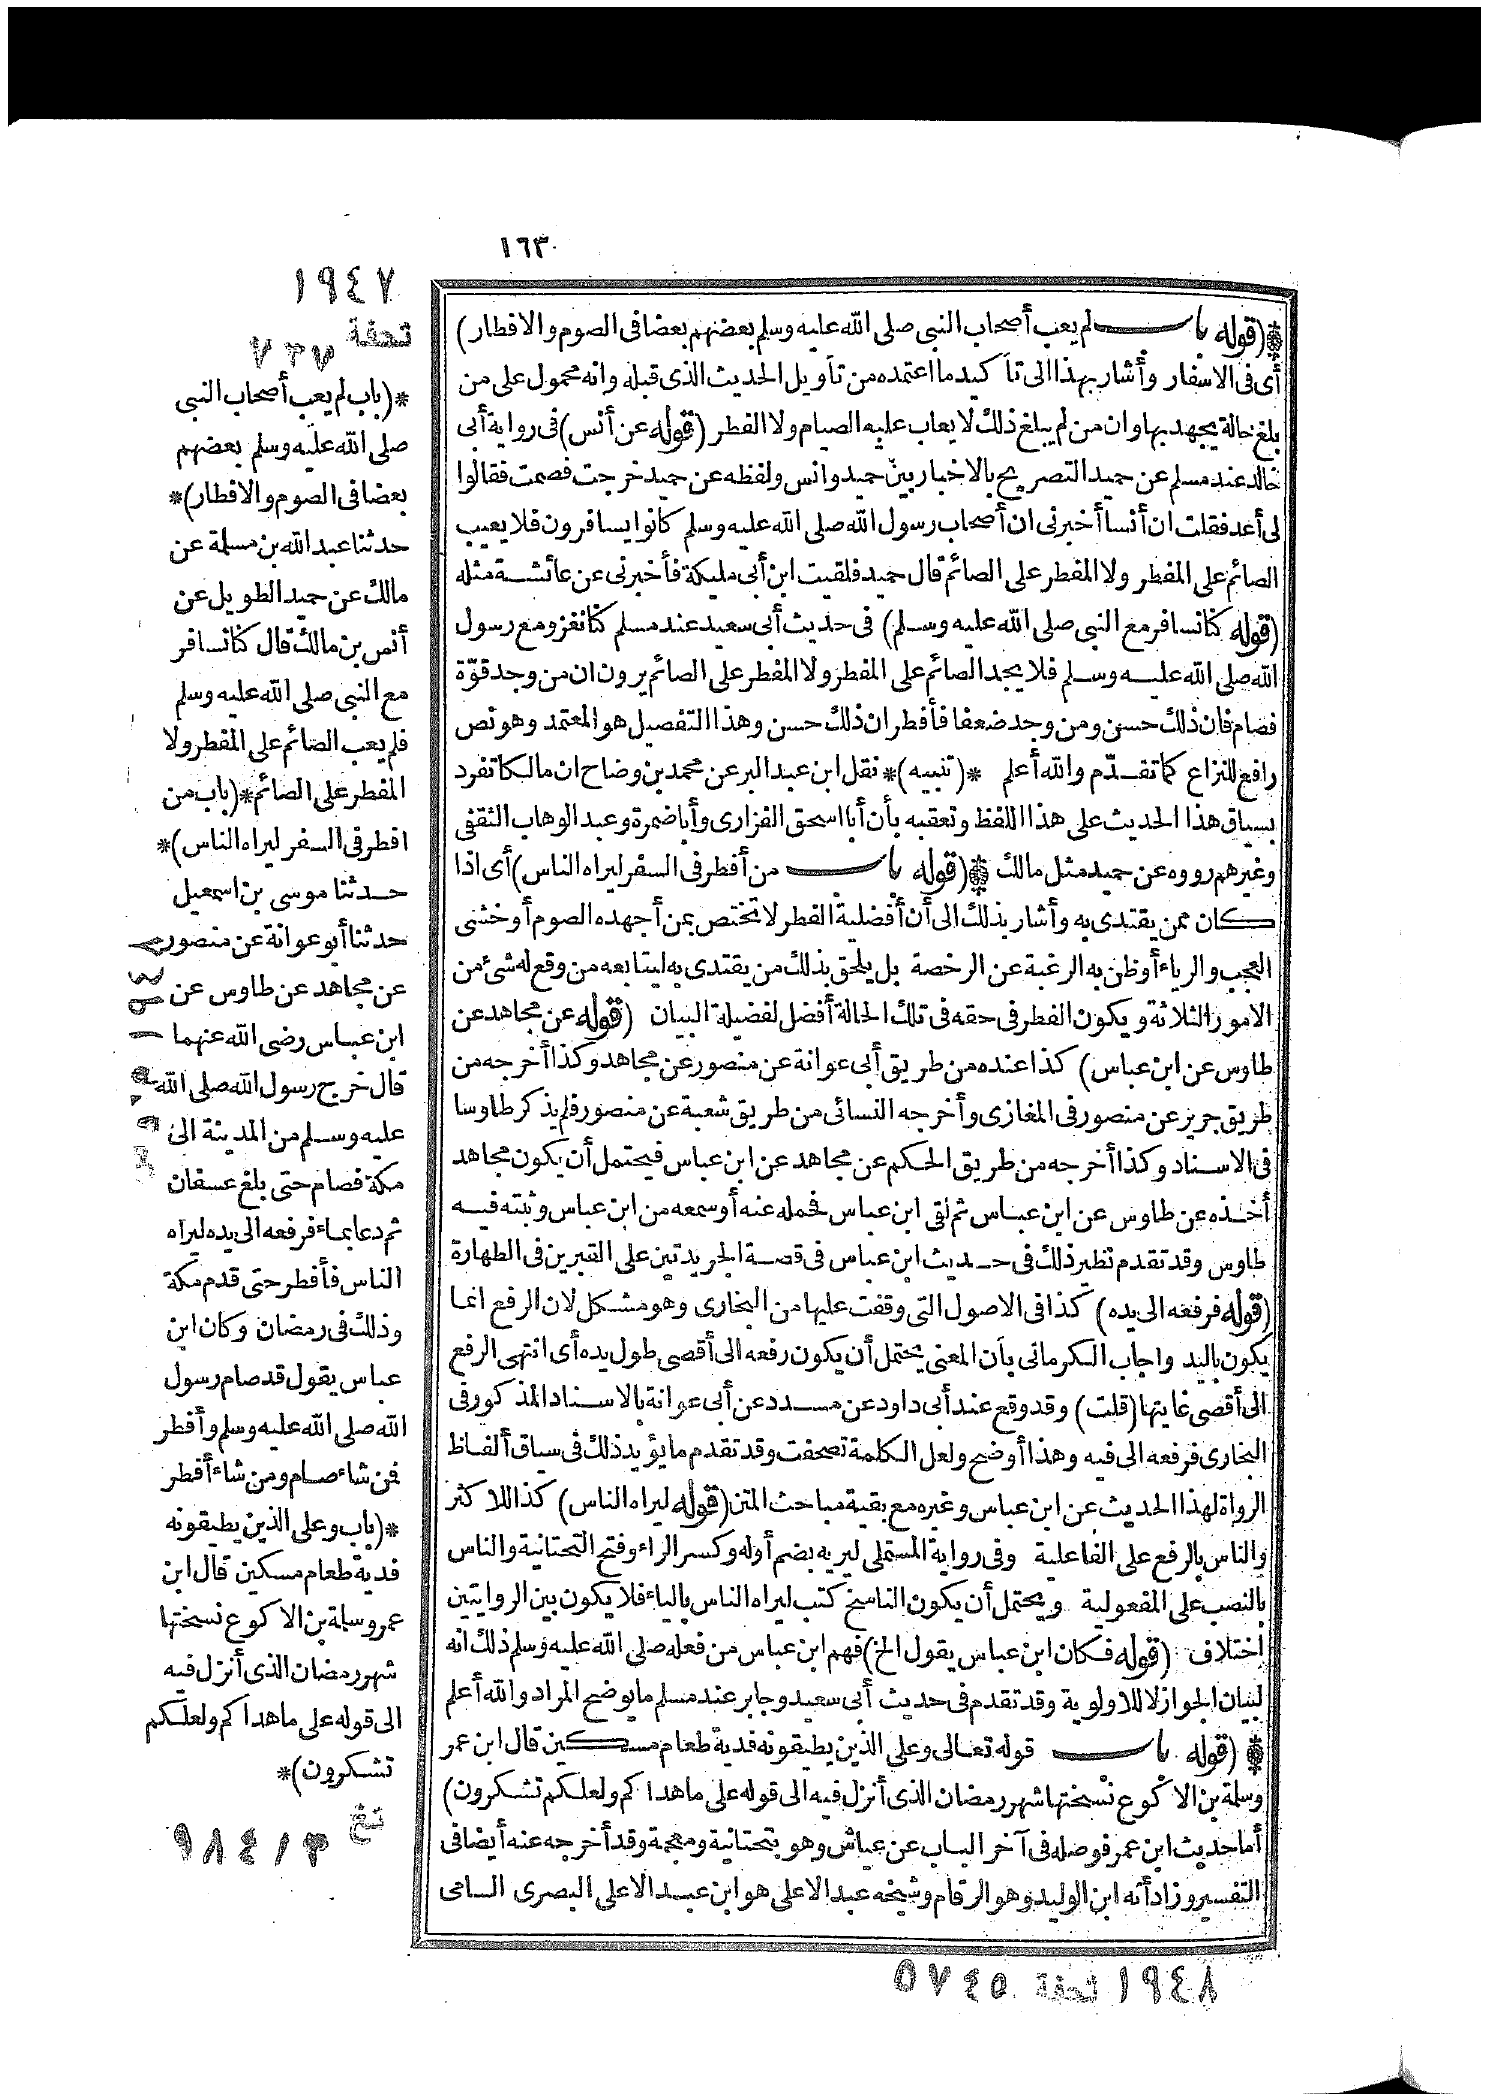 ١٦٣
١٩٤٧
تحفة
٧٣٧
*(باب لم يعب أصحاب النبى
صلى الله عليه وسلم بعضهم
بعضا فى الصوم والافطار)*
حدثنا عبد الله بن مسلمة عن
مالك عن حميد الطويل عن
أنس بن مالك قال كنا نسافر
مع النبى صلى الله عليه وسلم
فلم يعب الصائم على المفطر ولا
المفطر على الصائم *(باب من
افطر فى السفر ليراه الناس)*
حدثنا موسى بن اسمعيل
حدثنا أبو عوانة عن منصور
عن مجاهد عن طاوس عن
ابن عباس رضى الله عنهما
قال خرج رسول الله صلى الله
عليه وسلم من المدينة الى
مكة فصام حتى بلغ عسفان
ثم دعا بماء فرفعه الى يده ليراه
الناس فأفطر حتى قدم مكة
وذلك فى رمضان وكان ابن
عباس يقول قد صام رسول
الله صلى الله عليه وسلم وأفطر
فمن شاء صام ومن شاء أفطر
*(باب وعلى الذين يطيقونه
فدية طعام مسكين قال ابن
عمر وسلمة بن الاكوع نسختها
شهر رمضان الذى أنزل فيه
الى قوله على ما هداكم ولعلكم
تشكرون)*
تغ
٩٨٤/٣
(قوله باب لم يعب أصحاب النبى صلى الله عليه وسلم بعضهم بعضا فى الصوم والافطار)
أى فى الاسفار وأشار بهذا الى تأكيد ما اعتمده من تأويل الحديث الذى قبله وانه محمول على من
بلغ حالة يجهد بها وان من لم يبلغ ذلك لا يعاب عليه الصيام ولا الفطر (قوله عن أنس) فى رواية أبى
خالد عند مسلم عن حميد التصريح بالاخبار بين حميد وانس ولفظه عن حميد خرجت فصمت فقالوا
لى أعد فقلت ان أنسا أخبرنى ان أصحاب رسول الله صلى الله عليه وسلم كانوا يسافرون فلا يعيب
الصائم على المفطر ولا المفطر على الصائم قال حميد فلقيت ابن أبى مليكة فأخبرنى عن عائشة مثله
(قوله كنا نسافر مع النبى صلى الله عليه وسلم) فى حديث أبى سعيد عند مسلم كنا نغزو مع رسول
الله صلى الله عليه وسلم فلا يجد الصائم على المفطر ولا المفطر على الصائم يرون ان من وجد قوّة
فصام فان ذلك حسن ومن وجد ضعفا فأفطر ان ذلك حسن وهذا التفصيل هو المعتمد وهو نص
رافع للنزاع كما تقدّم والله أعلم *(تنبيه)* نقل ابن عبد البر عن محمد بن وضاح ان مالكا تفرد
بسياق هذا الحديث على هذا اللفظ وتعقبه بأن أبا اسحق الفزارى وأبا ضمرة وعبد الوهاب الثقفى
وغيرهم رووه عن حميد مثل مالك (قوله باب من أفطر فى السفر ليراه الناس) أى اذا
كان ممن يقتدى به وأشار بذلك الى أن أفضلية الفطر لا تختص بمن أجهده الصوم أو خشى
العجب والرياء أو ظن به الرغبة عن الرخصة بل يلحق بذلك من يقتدى به ليتابعه من وقع له شئ من
الامور الثلاثة ويكون الفطر فى حقه فى تلك الحالة أفضل لفضيلة البيان (قوله عن مجاهد عن
طاوس عن ابن عباس) كذا عنده من طريق أبى عوانة عن منصور عن مجاهد وكذا أخرجه من
طريق جرير عن منصور فى المغازى وأخرجه النسائى من طريق شعبة عن منصور فلم يذكر طاوسا
فى الاسناد وكذا أخرجه من طريق الحكم عن مجاهد عن ابن عباس فيحتمل أن يكون مجاهد
أخذه عن طاوس عن ابن عباس ثم لقى ابن عباس فحمله عنه أو سمعه من ابن عباس وثبته فيه
طاوس وقد تقدم نظير ذلك فى حديث ابن عباس فى قصة الجريدتين على القبرين فى الطهارة
(قوله فرفعه الى يده) كذا فى الاصول التى وقفت عليها من البخارى وهو مشكل لان الرفع انما
يكون باليد واجاب الكرمانى بأن المعنى يحتمل أن يكون رفعه الى أقصى طول يده أى انتهى الرفع
الى أقصى غايتها (قلت) وقد وقع عند أبى داود عن مسدد عن أبى عوانة بالاسناد المذكور فى
البخارى فرفعه الى فيه وهذا أوضح ولعل الكلمة تصحفت وقد تقدم ما يؤيد ذلك فى سياق ألفاظ
الرواة لهذا الحديث عن ابن عباس وغيره مع بقية مباحث المتن (قوله ليراه الناس) كذا للاكثر
والناس بالرفع على الفاعلية وفى رواية المستملى ليريه بضم أوله وكسر الراء وفتح التحتانية والناس
بالنصب على المفعولية ويحتمل أن يكون الناسخ كتب ليراه الناس بالياء فلا يكون بين الروايتين
اختلاف (قوله فكان ابن عباس يقول الخ) فهم ابن عباس من فعله صلى الله عليه وسلم ذلك انه
لبيان الجواز لا للاولوية وقد تقدم فى حديث أبى سعيد وجابر عند مسلم ما يوضح المراد والله أعلم
(قوله باب قوله تعالى وعلى الذين يطيقونه فدية طعام مسكين قال ابن عمر
وسلمة بن الاكوع نسختها شهر رمضان الذى أنزل فيه الى قوله على ما هداكم ولعلكم تشكرون)
أما حديث ابن عمر فوصله فى آخر الباب عن عياش وهو بتحتانية ومعجمة وقد أخرجه عنه أيضا فى
التفسير وزاد أنه ابن الوليد وهو الرقام وشيخه عبد الاعلى هو ابن عبد الاعلى البصرى السامى
١٩٤٨ تحفة ٥٧٤٥